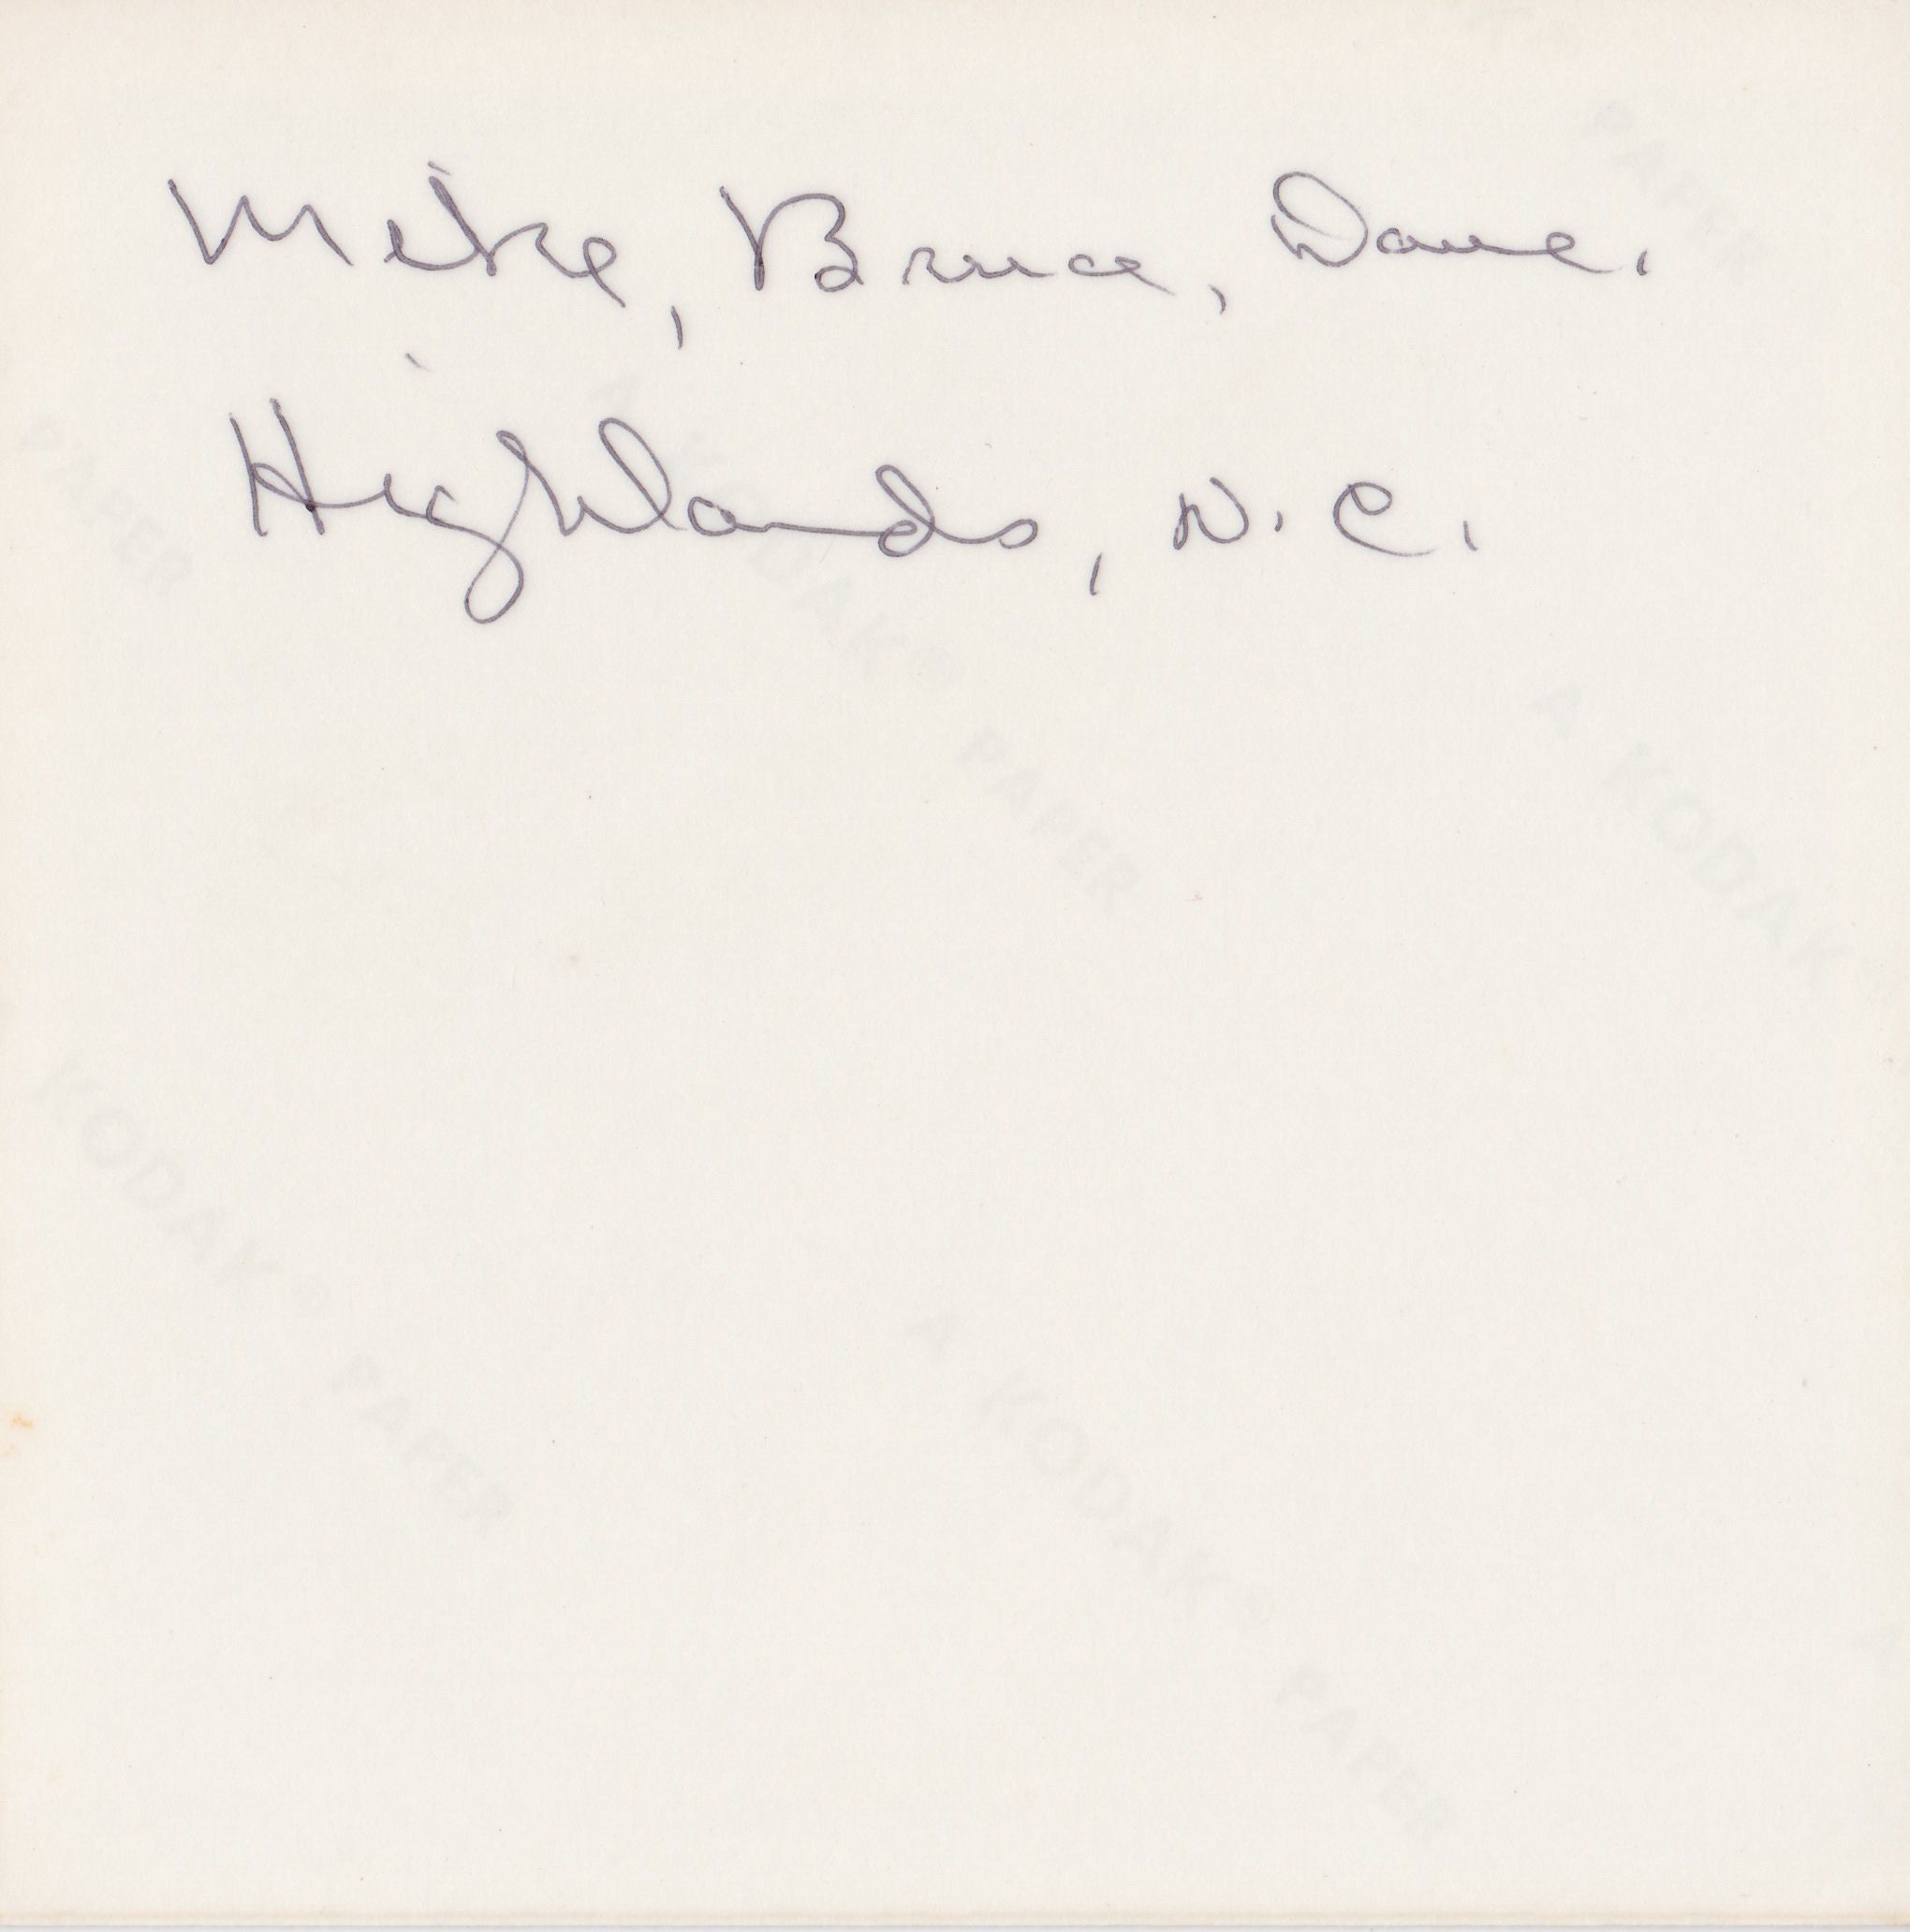 Mike, Bruce, Dave.
Highlands, N.C.
PAPER
PAPER
A KODAK® PAPER
A KODAK
KODAK® PAPER
A KODAK® PAPER
A